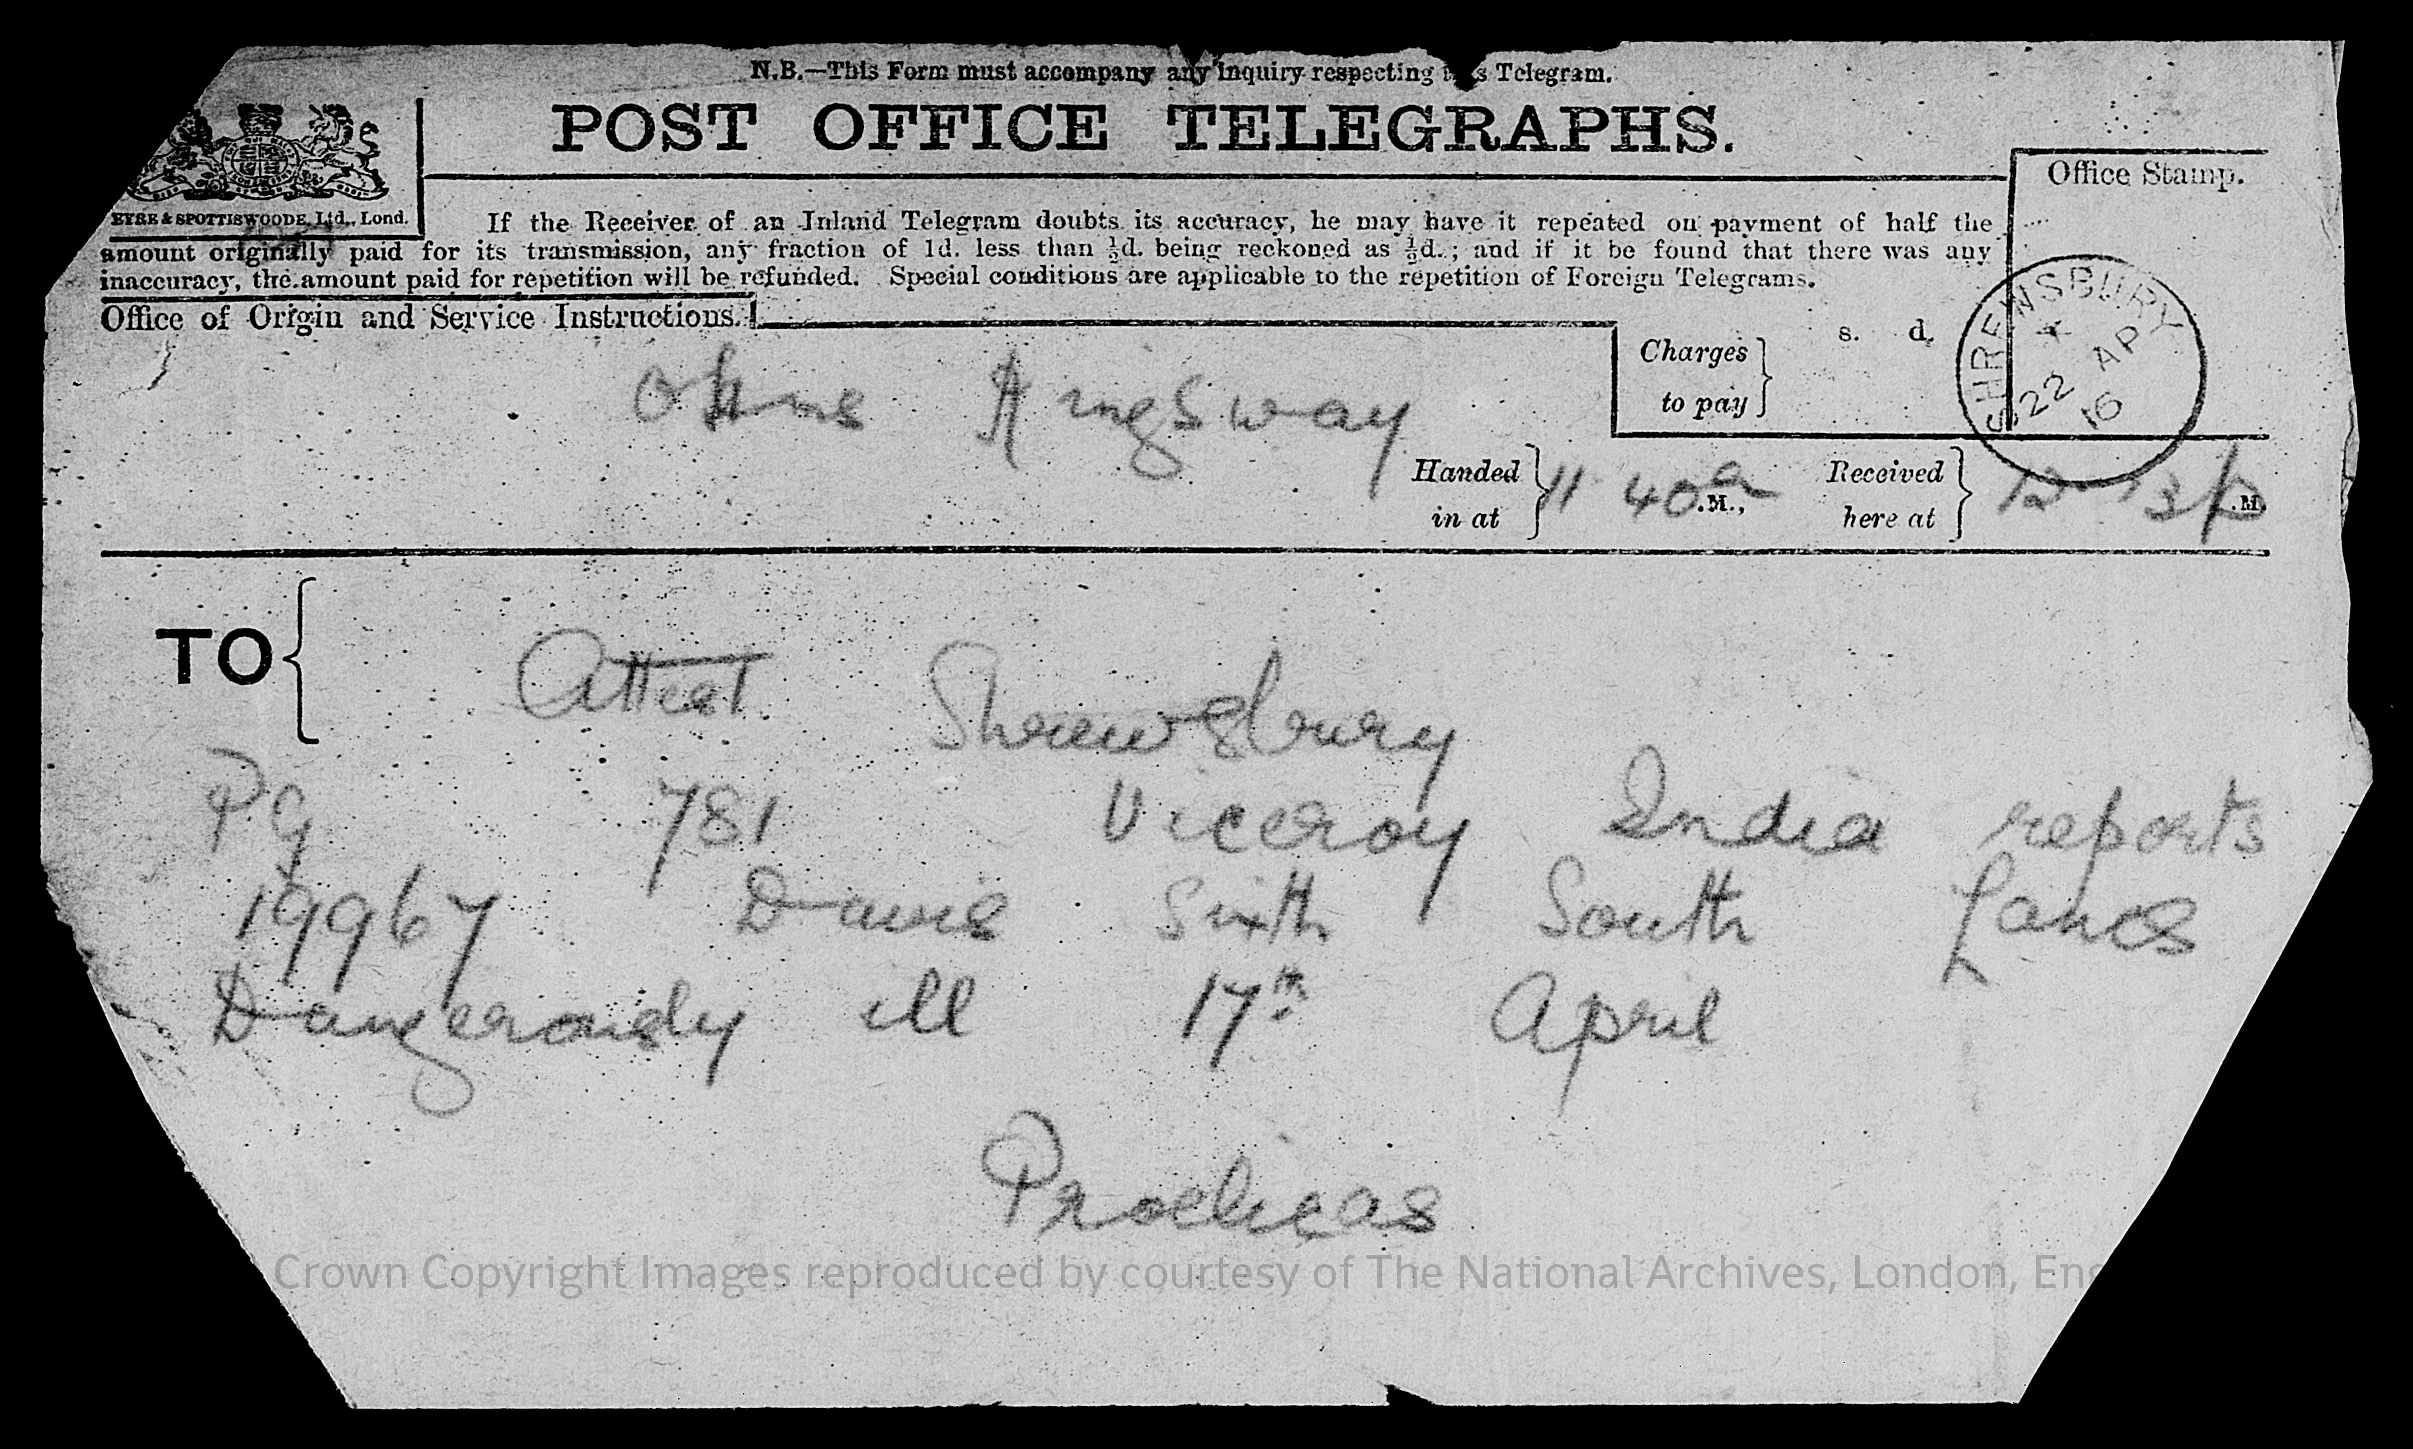 N.B.—This Form must accompany any inquiry respecting this Telegram.
POST OFFICE TELEGRAPHS.
EYRE & SPOTTISWOODE, Ltd., Lond.
Office Stamp.
If the Receiver of an Inland Telegram doubts its accuracy, he may have it repeated on payment of half the
amount originally paid for its transmission, any fraction of 1d. less than ½d. being reckoned as ½d.; and if it be found that there was any
inaccuracy, the amount paid for repetition will be refunded. Special conditions are applicable to the repetition of Foreign Telegrams.
Office of Origin and Service Instructions.
Charges to pay
s. d.
SHREWSBURY
22 AP 16
OHms Kingsway
Handed in at 11 40 a .M., Received here at 12 13 p .M.
TO
Attest Shrewsbury
PG 781 Viceroy India reports
19967 Davis Sixth South Lancs
Dangerously ill 17th April
Crown Copyright Images reproduced by courtesy of The National Archives, London, Eng